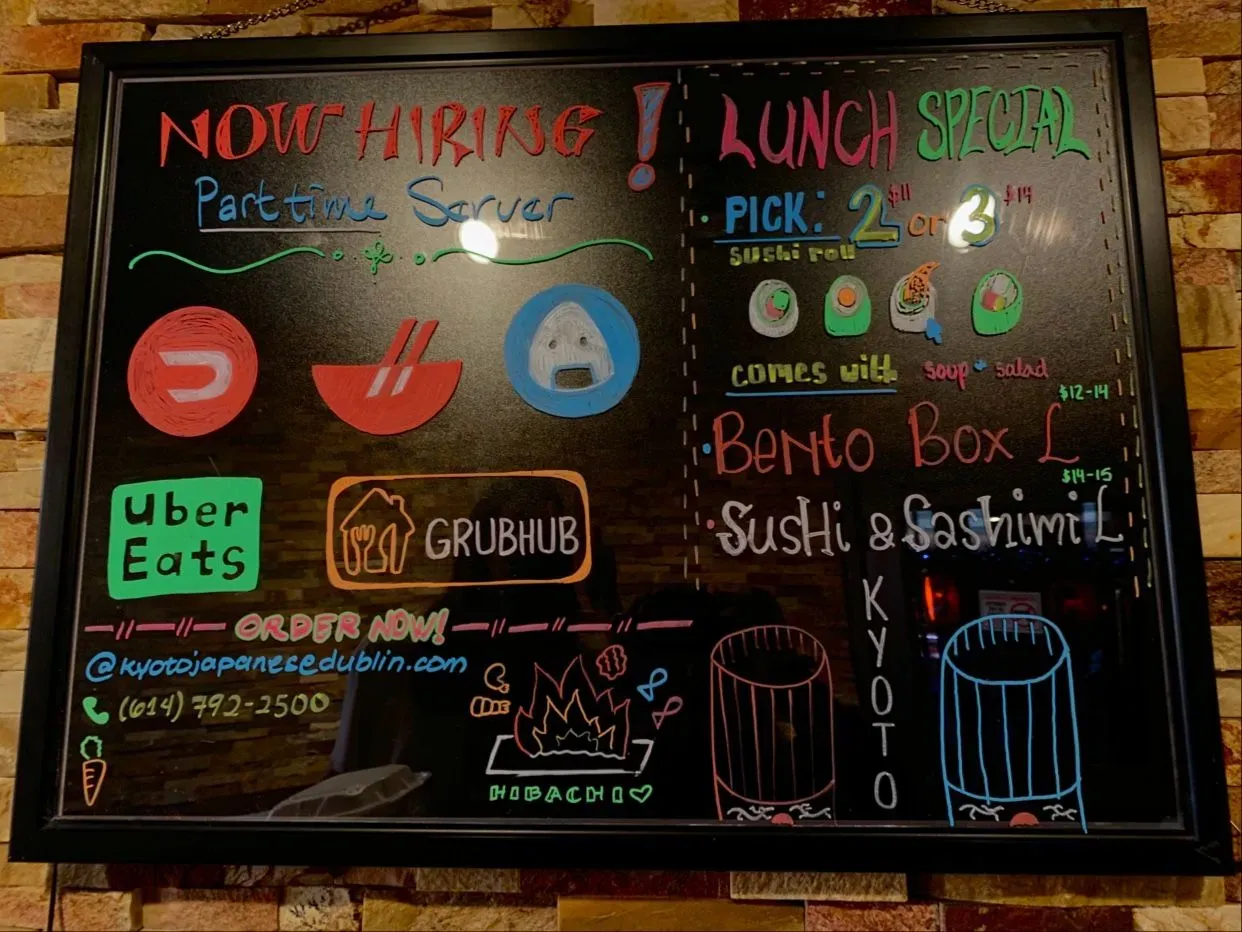 NOW HIRING !
Part time Server
Uber
Eats
GRUBHUB
ORDER NOW!
@kyotojapanesedublin.com
(614) 792-2500
HIBACHI
LUNCH SPECIAL
PICK: 2 $11 or 3 $14
sushi roll
comes with soup + salad
$12-14
Bento Box L
$14-15
Sushi & Sashimi L
KYOTO